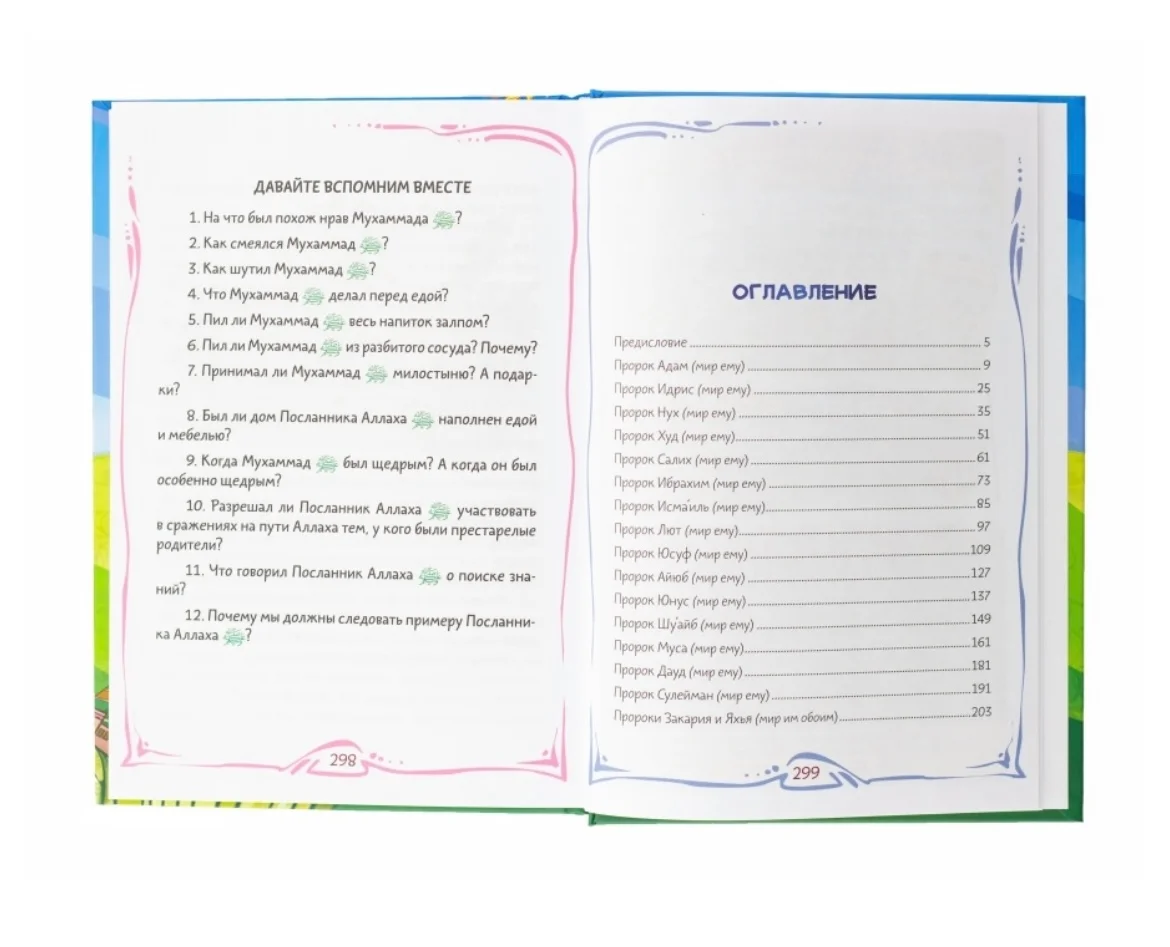 ДАВАЙТЕ ВСПОМНИМ ВМЕСТЕ
1. На что был похож нрав Мухаммада ﷺ?
2. Как смеялся Мухаммад ﷺ?
3. Как шутил Мухаммад ﷺ?
4. Что Мухаммад ﷺ делал перед едой?
5. Пил ли Мухаммад ﷺ весь напиток залпом?
6. Пил ли Мухаммад ﷺ из разбитого сосуда? Почему?
7. Принимал ли Мухаммад ﷺ милостыню? А подар-
ки?
8. Был ли дом Посланника Аллаха ﷺ наполнен едой
и мебелью?
9. Когда Мухаммад ﷺ был щедрым? А когда он был
особенно щедрым?
10. Разрешал ли Посланник Аллаха ﷺ участвовать
в сражениях на пути Аллаха тем, у кого были престарелые
родители?
11. Что говорил Посланник Аллаха ﷺ о поиске зна-
ний?
12. Почему мы должны следовать примеру Посланни-
ка Аллаха ﷺ?
298
ОГЛАВЛЕНИЕ
Предисловие ........ 5
Пророк Адам (мир ему) ........ 9
Пророк Идрис (мир ему) ........ 25
Пророк Нух (мир ему) ........ 35
Пророк Худ (мир ему) ........ 51
Пророк Салих (мир ему) ........ 61
Пророк Ибрахим (мир ему) ........ 73
Пророк Исма'иль (мир ему) ........ 85
Пророк Лют (мир ему) ........ 97
Пророк Юсуф (мир ему) ........ 109
Пророк Айюб (мир ему) ........ 127
Пророк Юнус (мир ему) ........ 137
Пророк Шу'айб (мир ему) ........ 149
Пророк Муса (мир ему) ........ 161
Пророк Дауд (мир ему) ........ 181
Пророк Сулейман (мир ему) ........ 191
Пророки Закария и Яхья (мир им обоим) ........ 203
299